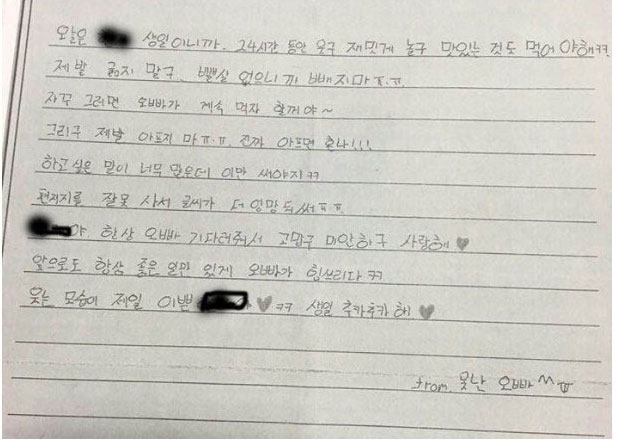 오늘은 생일이니까. 24시간 동안 웃구 재밋게 놀구 맛있는 것도 먹어야해ㅋㅋ.
제발 굶지 말구. 뺄살 없으니까 빼지마ㅠ.ㅠ.
자꾸 그러면 오빠가 계속 먹자 할꺼야~
그리구 제발 아프지 마ㅠ.ㅠ. 진짜 아프면 혼나!!!
하고 싶은 말이 너무 많은데 이만 써야지ㅋㅋ
편지지를 잘못 사서 글씨가 더 엉망 ㅠ.ㅠ.
야 항상 오빠 기다려줘서 고맙구 미안하구 사랑해♥
앞으로도 항상 좋은 일만 있게 오빠가 힘쓰리다ㅋㅋ
웃는 모습이 제일 이쁜 ♥ㅋㅋ 생일 추카추카해♥
from. 못난 오빠^^ㅠ